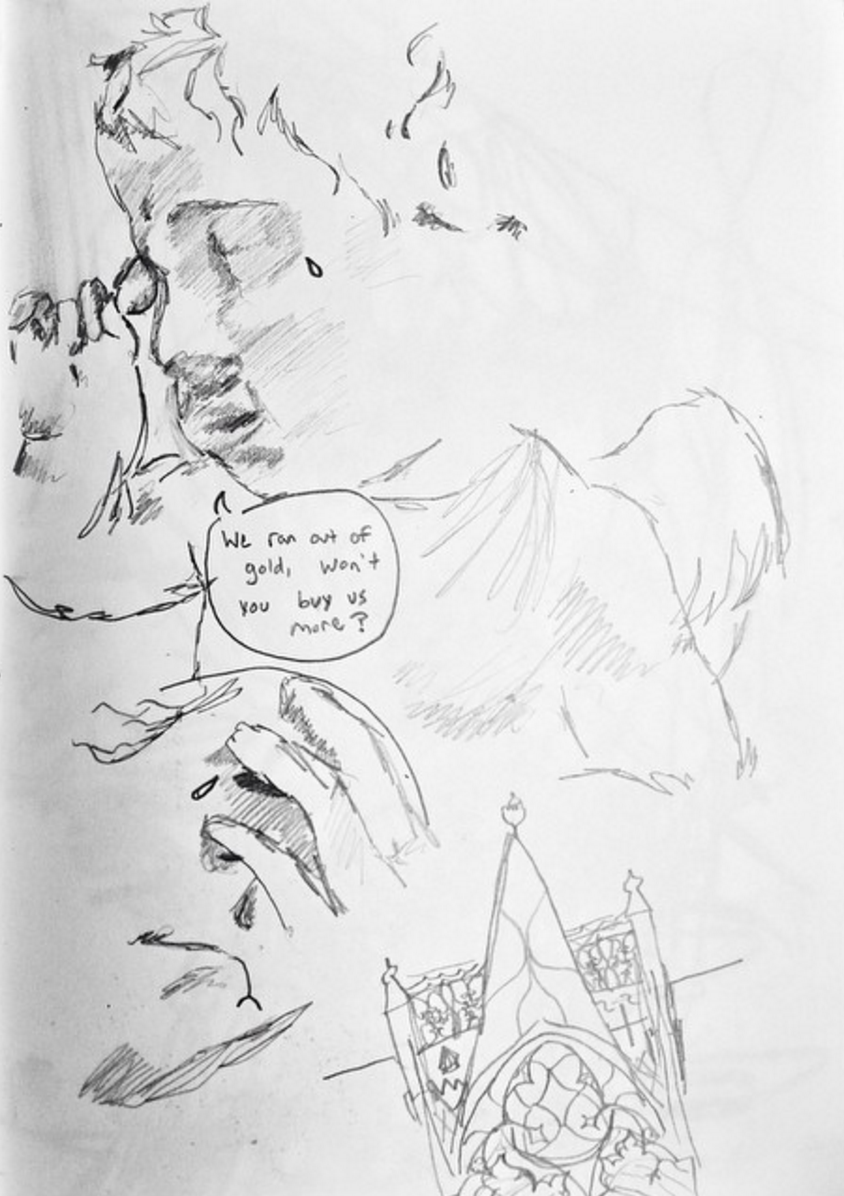 We ran out of
gold, won't
you buy us
more?